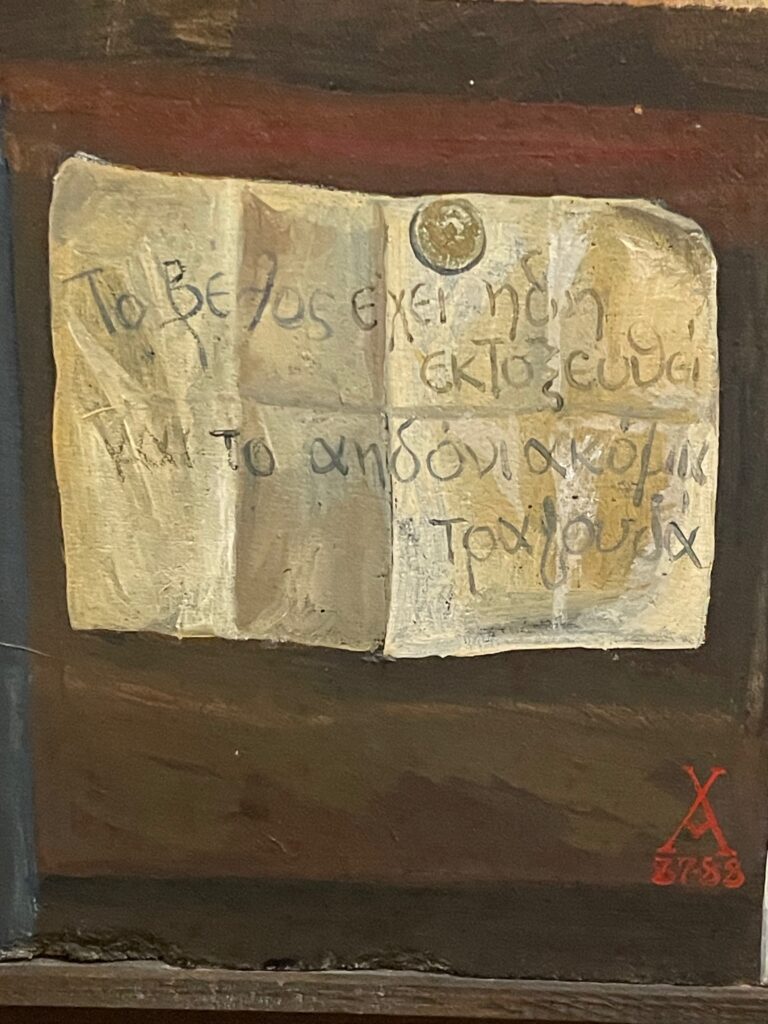 Το βέλος έχει ήδη
εκτοξευθεί
και το αηδόνι ακόμα
τραγουδά
ΧΑ
87-88